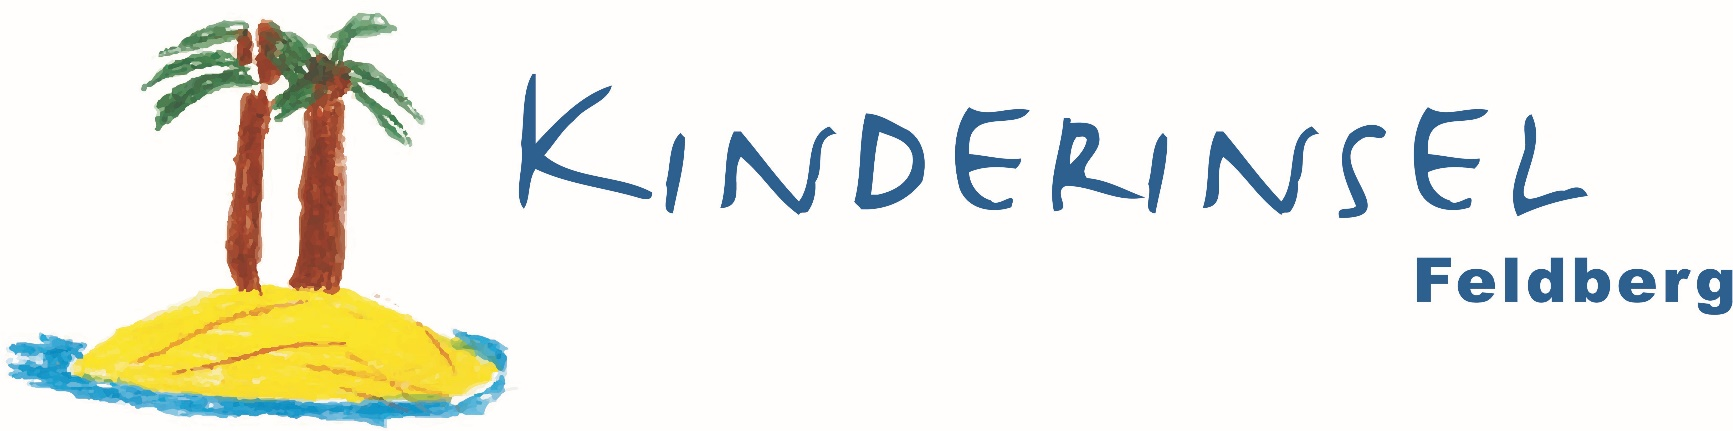 KINDERINSEL
Feldberg